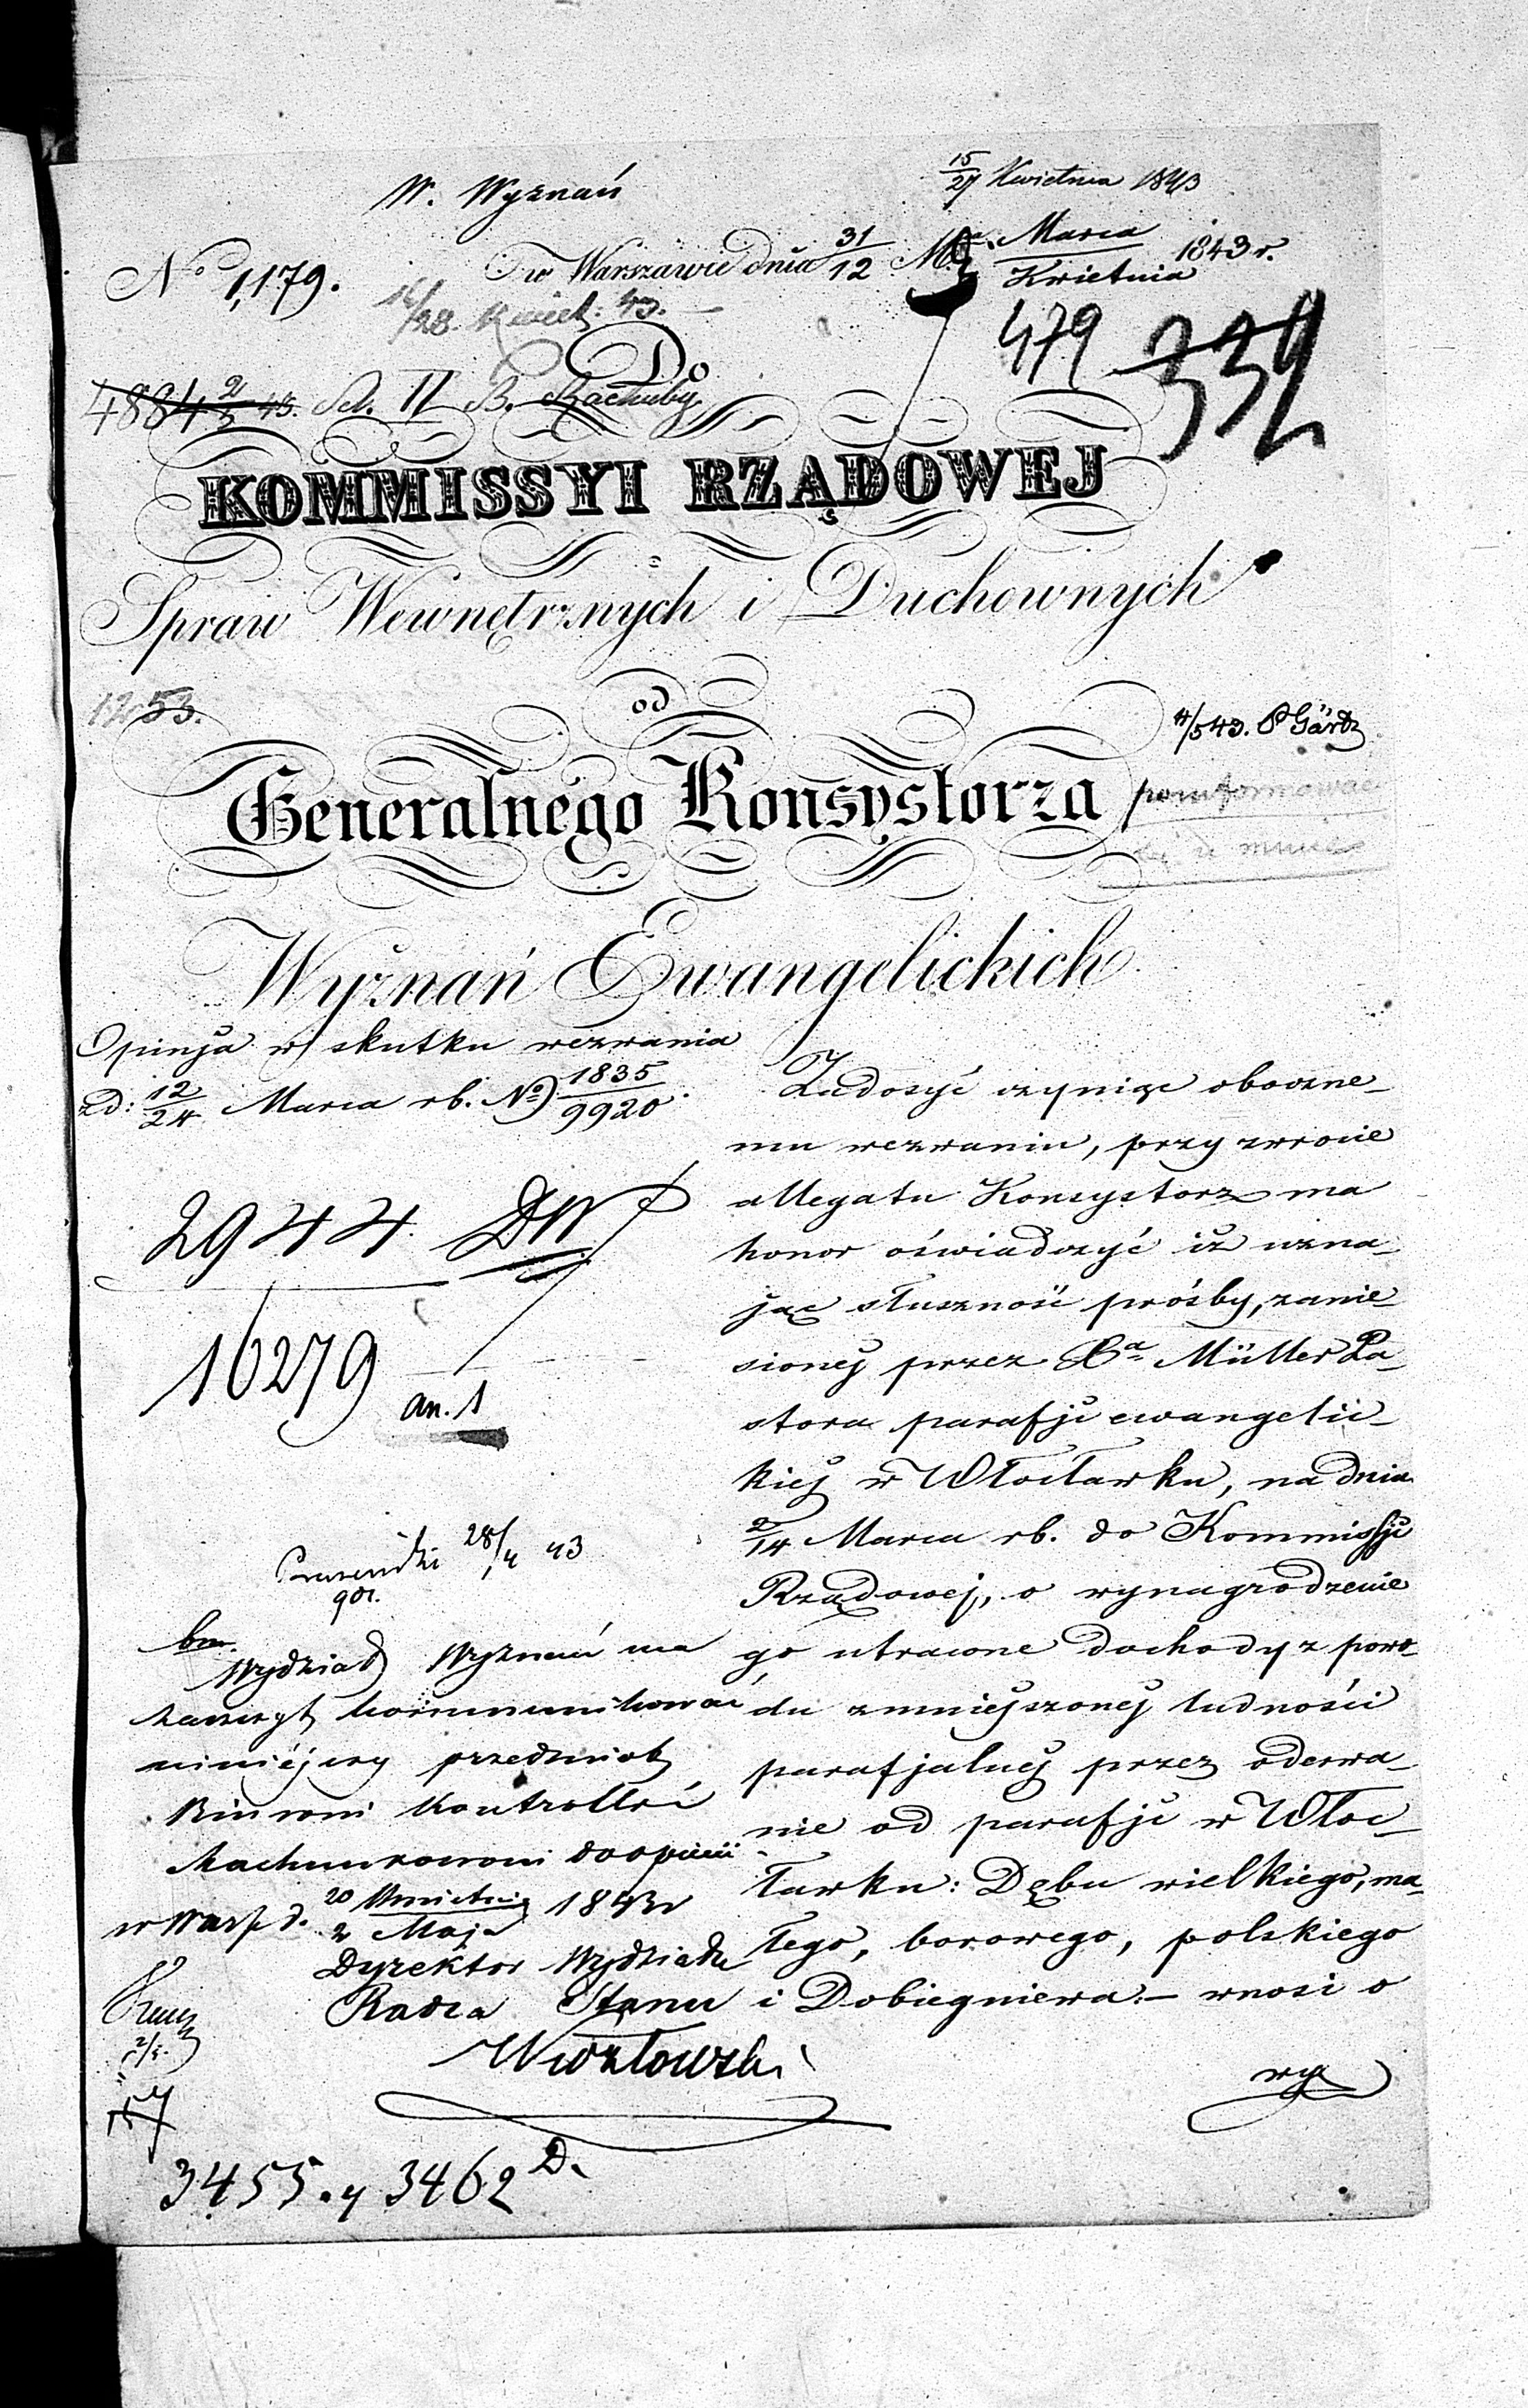 W. Wyznań
15/27 Kwietnia 1843
No 1,179.
w Warszawie dnia 31/12 M. Marca/Kwietnia 1843 r.
16/28 Kwiet. 43.
479 332
Do
4884 2/5 43. Sek. II B. Rachuby
KOMMISSYI RZĄDOWEJ
Spraw Wewnętrznych i Duchownych
1253.
od
4/5 43. P Gärtz
Generalnego Konsystorza
poinformować
się u mnie
Wyznań Ewangelickich
Opinja w skutku wezwania
zd: 12/24 Marca rb. No 1835/9920.
2944. DW
16279
an. 1
28/4 43
Wydział Wyznań ma
zaszczyt kommunikować
niniéjszy przedmiot
Biurowi Kontrolli i
Rachunkowemu do opinii
w Warsz d. 20 Kwietnia/2 Maja 1843 r
Dyrektor Wydziału
Radca Stanu
3455. y 3462 D.
Zadosyć czyniąc oboczne-
mu wezwaniu, przy zwrocie
allegatu Konsystorz ma
honor oświadczyć iż uzna-
jąc słuszność prośby, zanie-
sionej przez Xa Müller Pa-
stora parafji ewangelic-
kiej w Włocławku, na dniu
2/14 Marca rb. do Kommissji
Rządowej, o wynagrodzenie
go utracone dochody z powo-
du zmniejszonej ludności
parafjalnej przez oderwa-
nie od parafji w Włoc-
ławku: Dębu wielkiego, ma-
łego, borowego, polskiego
i Dobiegniewa.- wnosi o
wy